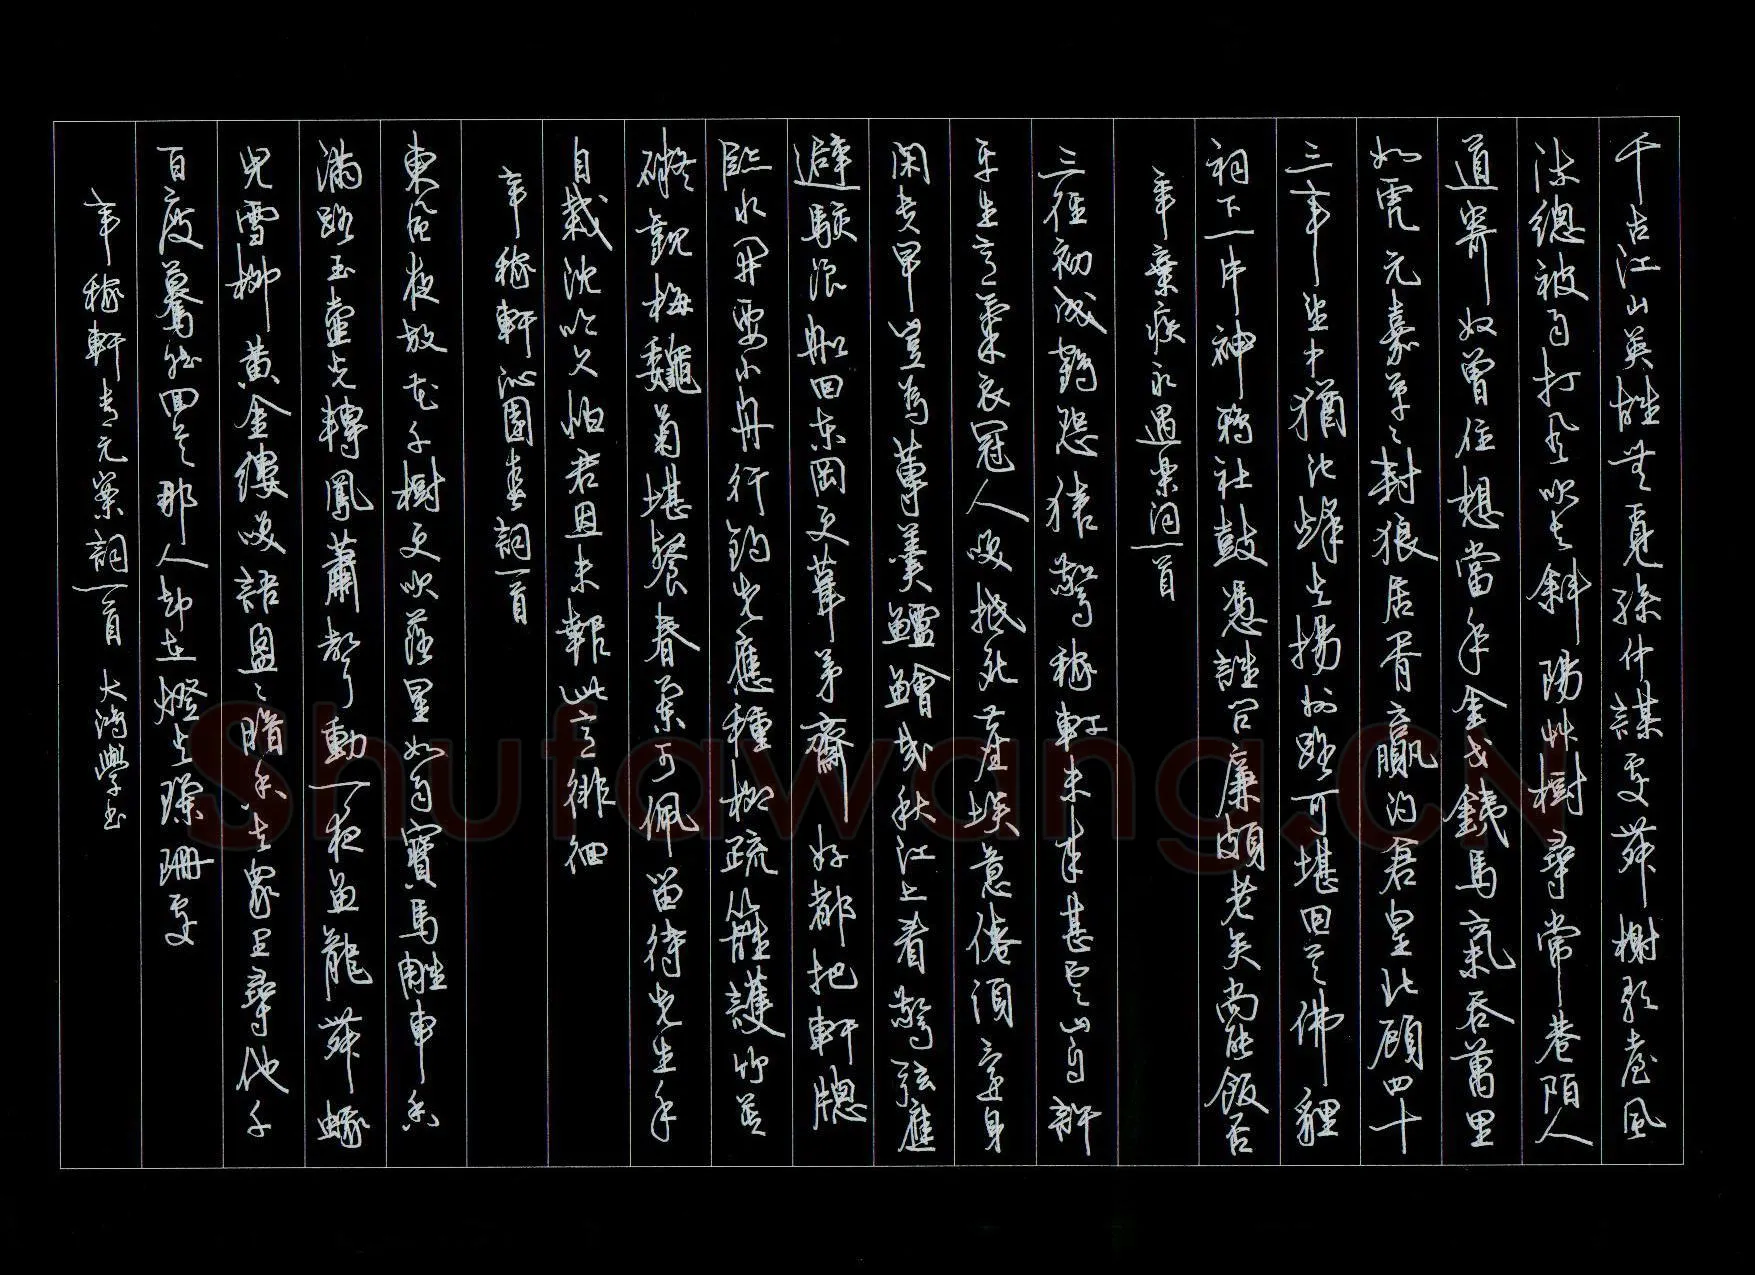 千古江山英雄無覓孫仲謀處舞榭歌臺風
流總被雨打風吹去斜陽艸樹尋常巷陌人
道寄奴曾住想當年金戈鐵馬氣吞萬里
如虎元嘉草〻封狼居胥贏得倉皇北顧四十
三年望中猶記烽火揚州路可堪回首佛貍
祠下一片神鴉社鼓憑誰問廉頗老矣尚能飯否
辛棄疾永遇樂詞一首
三徑初成鶴怨猿驚稼軒未來甚雲山自許
平生意氣衣冠人笑抵死塵埃意倦須還身
閑貴早豈為蓴羹鱸鱠哉秋江上看驚弦雁
避駭浪船回東岡更葺茅齋好都把軒牕
臨水開要小舟行釣先應種柳疏籬護竹莫
礙觀梅秋菊堪餐春蘭可佩留待先生手
自栽沈吟久怕君恩未報此意徘徊
辛稼軒沁園春詞一首
東風夜放花千樹更吹落星如雨寶馬雕車香
滿路玉壺光轉鳳蕭聲動一夜魚龍舞蛾
兒雪柳黃金縷笑語盈〻暗香去眾里尋他千
百度驀然回首那人却在燈火璨珊處
辛稼軒青元案詞一首 大鴻學書
Shufawang.CN